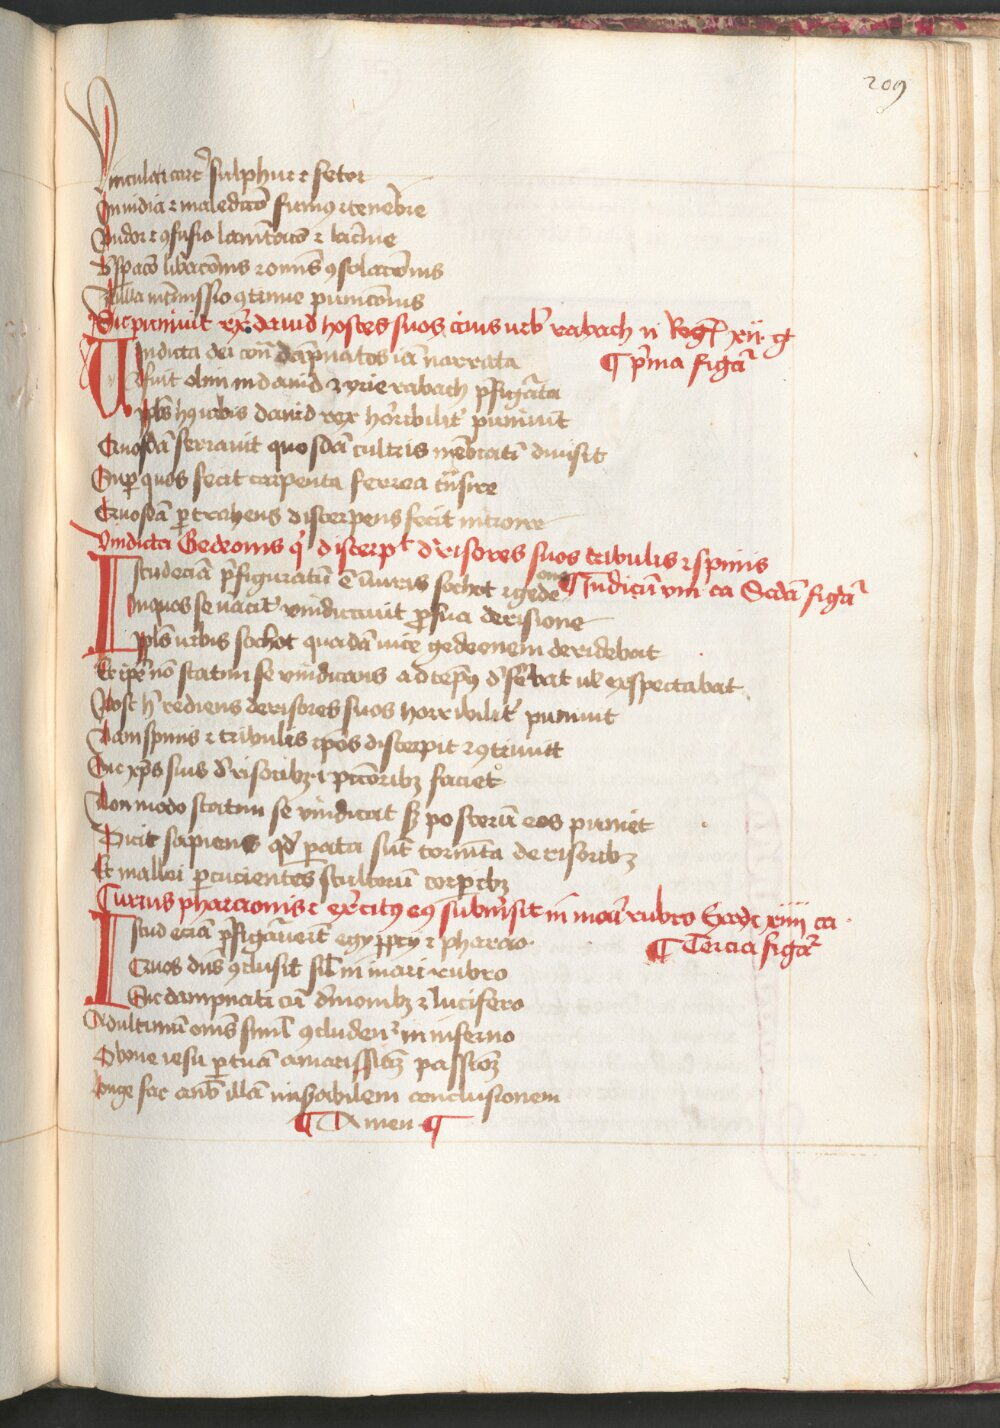 209
Vincula carcer sulphur et fetor
Inuidia et maledictio fumus et tenebre
Pudor et confusio lamentacio et lacrime
Desperacio liberacionis et omnis consolacionis
Nulla intermissio continue punicionis
Sic puniuit rex dauid hostes suos ciuis urbis rabach ii Regum xii g
Vindicta dei contra dampnatos iam narrata
¶ prima figura
fuit olim in dauid et urbe rabach prefigurata
pplos huius urbis dauid rex horribiliter puniuit
Quosdam serrauit quosdam cultris membratim diuisit
Super quos fecit carpenta ferrea transire
Quosdam pertrahens discerpens fecit introire
Vindicta Gedeonis qui discerpsit derisores suos tribulis et spinis
Istud eciam prefiguratum est in viris sochot et gedeone
¶ Iudicum viii ca Secunda figura
In quos se uiriliter vindicauit pro sua derisione
pplus urbis sochot quadam vice gedeonem deridebat
Et ipse non statim se vindicans ad tempus differebat vel exspectabat
Post hec rediens derisores suos horribiliter puniuit
Nam spinis et tribulis ipsos discerpit et contriuit
Sic xpus suis derisoribus et peccatoribus faciet
Non modo statim se vindicat sed posterum eos puniet
Dicit sapiens quod parata sunt tormenta derisoribus
Et mallei percucientes stultorum corporibus
Currus pharaonis et exercitus eius submersit in mari rubro Exodi xiiii ca
Istud eciam prefigurauerunt egyppcy et pharao
¶ Tercia figura
Quos dominus conclusit simul in mari rubro
Sic dampnati cum demonibus et lucifero
Ad ultimum omnes simul concludentur in inferno
O bone iesu per tuam amarissimam passionem
Longe fac a nobis illam miserabilem conclusionem
¶ Amen ¶